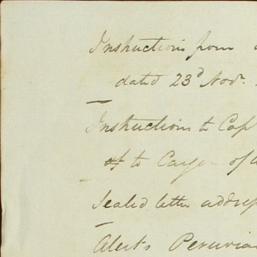 Instructions from
dated 23d Novr.
Instructions to Cap
of to Cargo of
Sealed letter addres
Alert's Peruvian